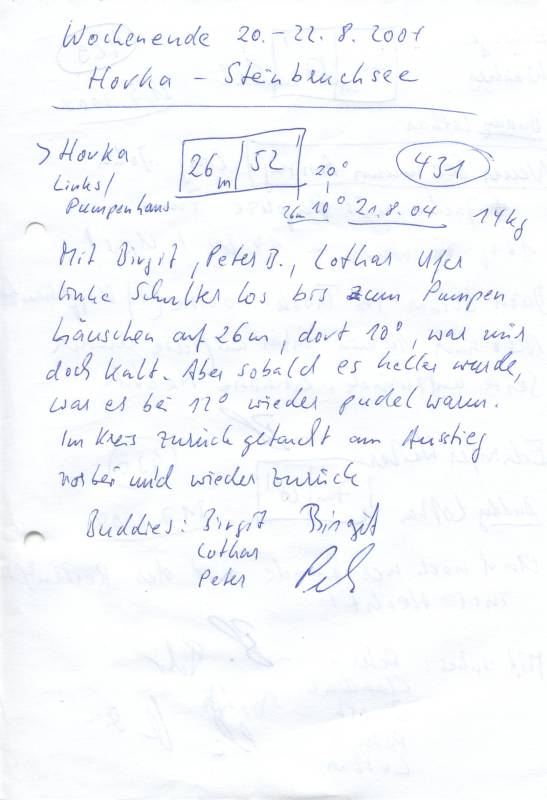 Wochenende 20.-22.8.2004
Horka - Steinbruchsee
> Horka 26m/52' 20° 431
Links/
Pumpenhaus 26m 10° 21.8.04 14kg
Mit Birgit, Peter B., Lothar Ufer
linke Schulter los bis zum Pumpen
häuschen auf 26m, dort 10°, war mir
doch kalt. Aber sobald es heller wurde,
war es bei 12° wieder pudel warm.
Im Kreis zurück getaucht am Ausstieg
vorbei und wieder zurück
Buddies: Birgit Birgit
Lothar
Peter